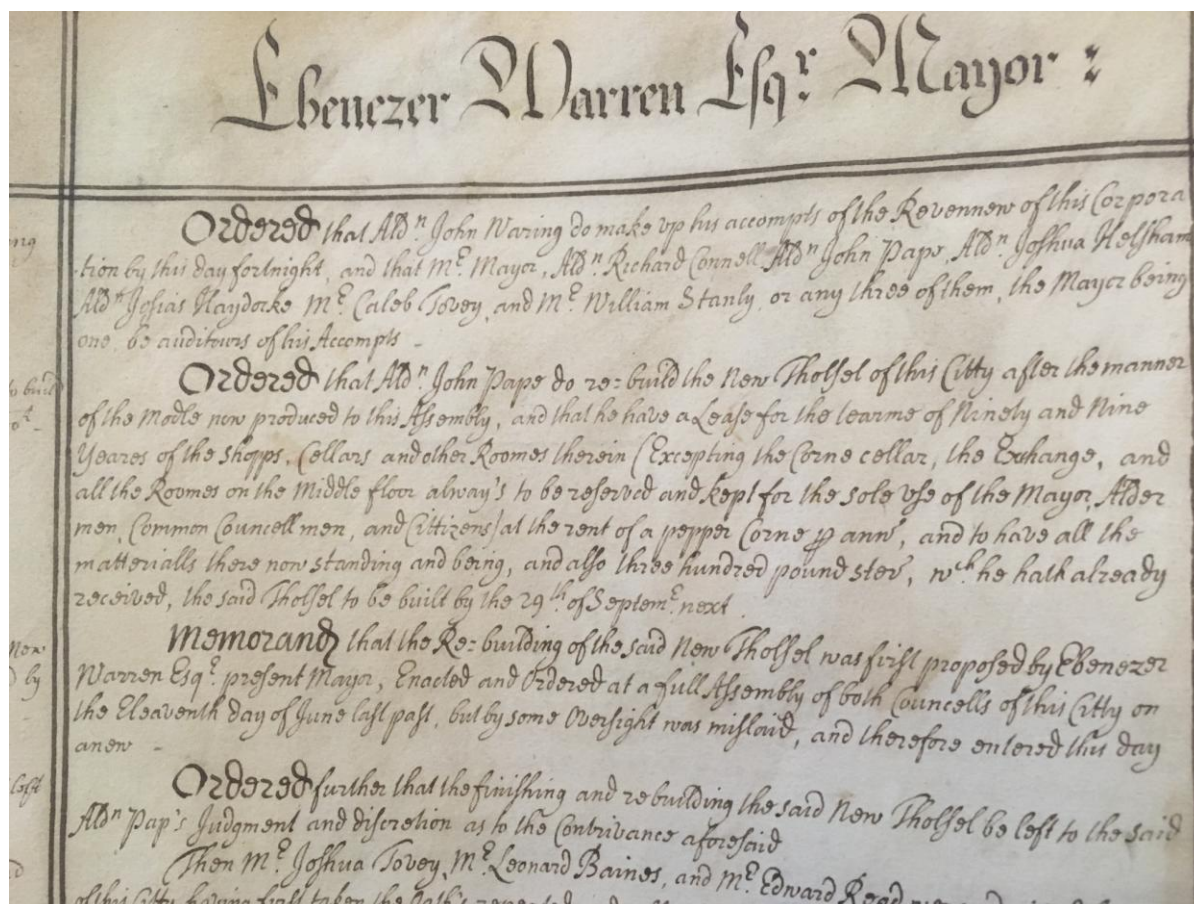 Ebenezer Warren Esqr. Mayor :
Ordered that Aldn. John Waring do make up his accompts of the Revennew of this Corpora
-tion by this day fortnight, and that Mr. Mayor, Aldn. Richard Connell Aldn John Pape, Aldn. Joshua Helsham
Aldn Josias Haydocke Mr. Caleb Tovey, and Mr. William Stanly, or any three of them, the Mayor being
one, be auditours of his Accompts -
Ordered that Aldn. John Pape do re=build the New Tholsel of this Citty after the manner
of the Modle now produced to this Assembly, and that he have a Lease for the tearme of Ninety and Nine
Yeares of the Shopps, Cellars and other Roomes therein (Excepting the Corne cellar, the Exchange, and
all the Roomes on the Middle floor alway's to be reserved and kept for the sole use of the Mayor, Alder
men, Common Councellmen, and Cittizens) at the rent of a pepper Corne p ann', and to have all the
matterialls there now standing and being, and also three hundred pound ster', wch he hath already
received, the said Tholsel to be built by the 29th of Septemr. next
Memorand that the Re=building of the said New Tholsel was first proposed by Ebenezer
Warren Esqr. present Mayor, Enacted and Ordered at a full Assembly of both Councells of this Citty on
the Eleaventh day of June last past, but by some Oversight was mislaid, and therefore entered this day
anew -
Ordered further that the finishing and rebuilding the said New Tholsel be left to the said
Aldn Pap's Judgment and discretion as to the Contrivance aforesaid
Then Mr. Joshua Tovey, Mr. Leonard Baines, and Mr. Edward
of this Citty having first taken the Oath's